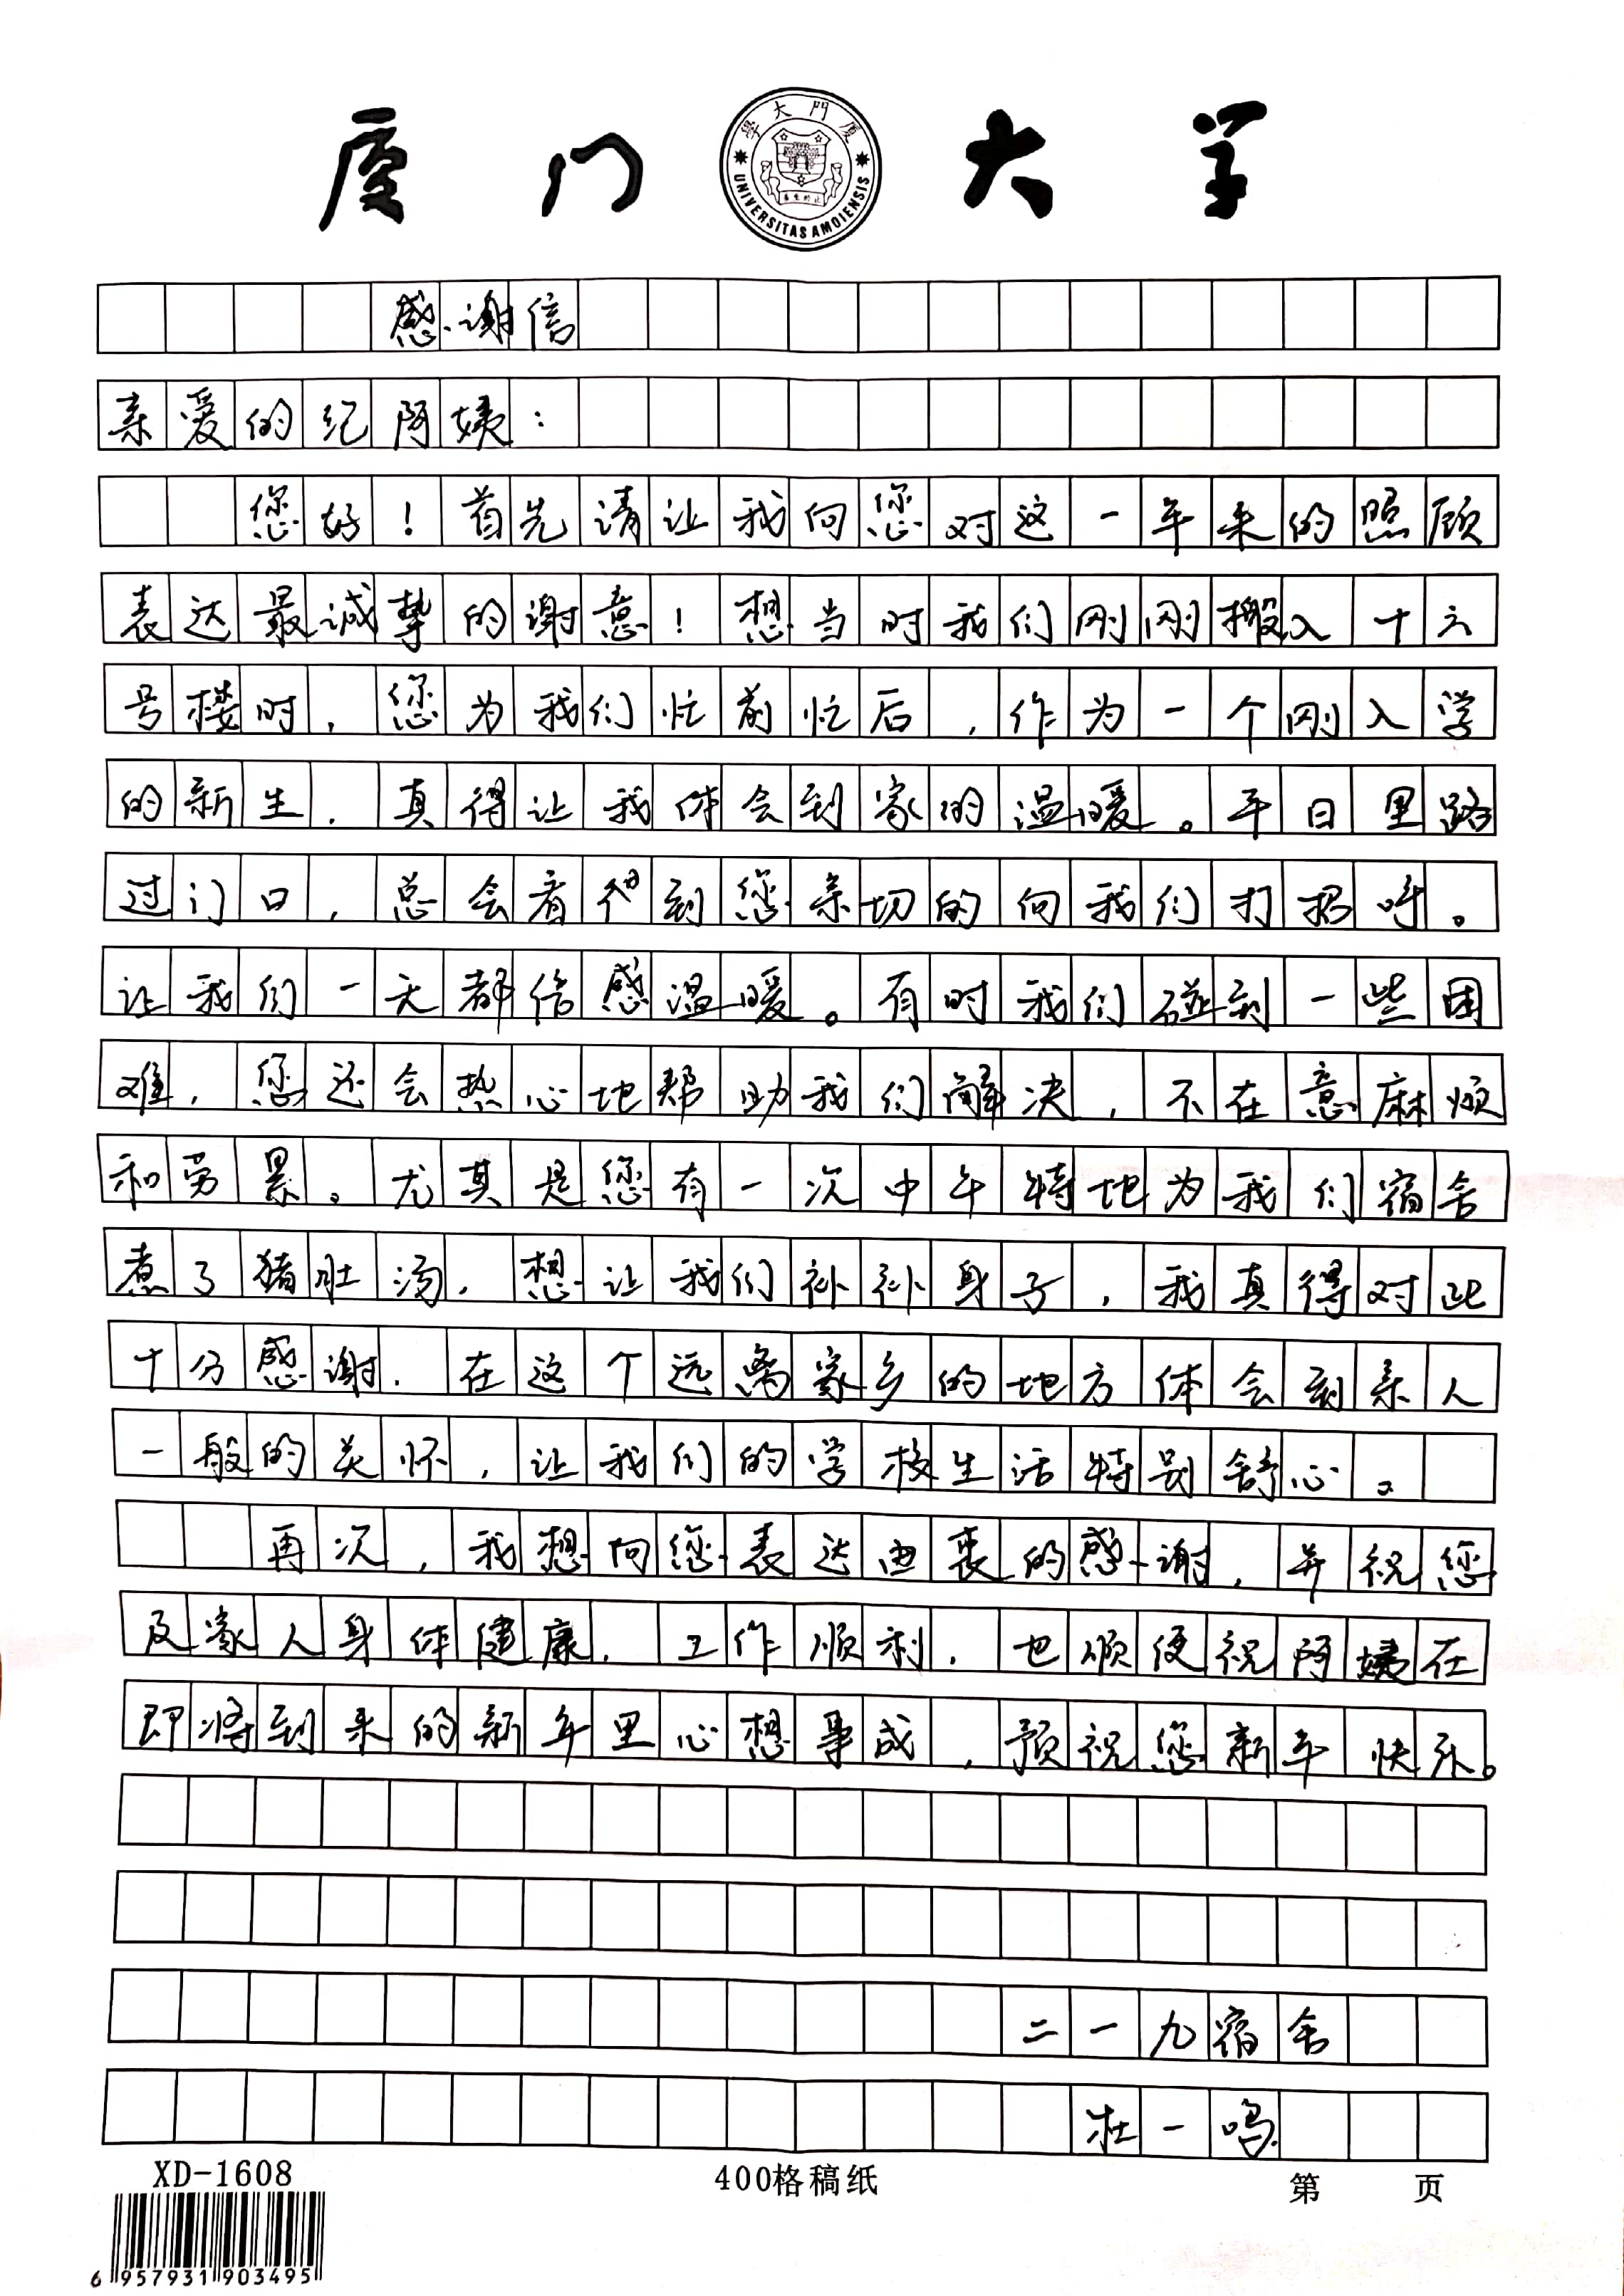 厦门大学
學大門廈
UNIVERSITAS AMOIENSIS
感谢信
亲爱的纪阿姨：
您好！首先请让我向您对这一年来的照顾
表达最诚挚的谢意！想当时我们刚刚搬入十六
号楼时，您为我们忙前忙后，作为一个刚入学
的新生，真得让我体会到家的温暖。平日里路
过门口，总会看到您亲切的向我们打招呼。
让我们一天都倍感温暖。有时我们碰到一些困
难，您还会热心地帮助我们解决，不在意麻烦
和劳累。尤其是您有一次中午特地为我们宿舍
煮了猪肚汤，想让我们补补身子，我真得对此
十分感谢，在这个远离家乡的地方体会到亲人
一般的关怀，让我们的学校生活特别舒心。
再次，我想向您表达由衷的感谢，并祝您
及家人身体健康，工作顺利，也顺便祝阿姨在
即将到来的新年里心想事成，预祝您新年快乐。
二一九宿舍
一鸣
XD-1608
400格稿纸
第 页
6 957931 903495